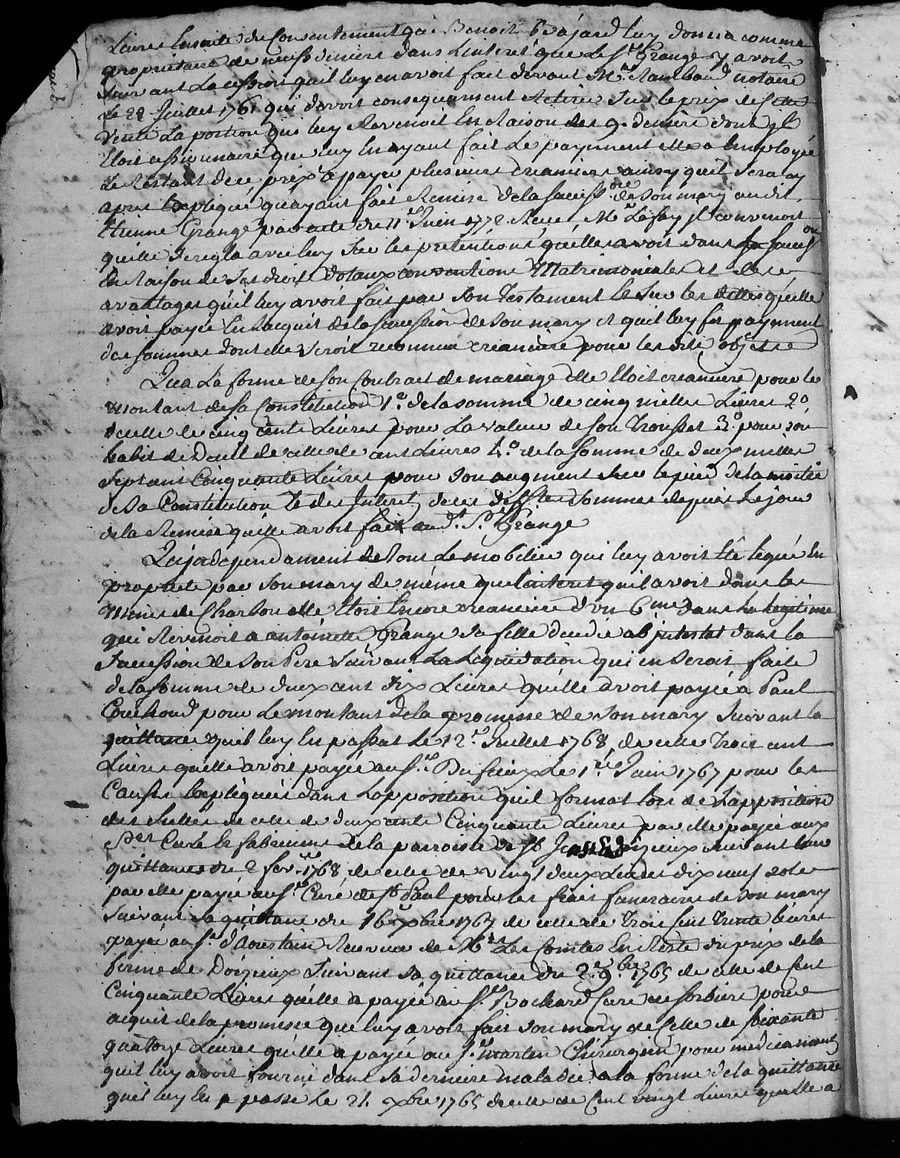 Livres Ensuite du Consentement que Benoit Bajard luy donna comme
proprietaire de neufs deniers dans L'interet que Le Sr Grange y avoit
Suivant La cession quil luy en avoit fait devant Me Rambaud notaire
Le 28 Juillet 1761 qui devoit consequament Retirer Sur le prix de cette
Vente La portion qui luy Revenoit En Raison des 9. deniers dont il
Etoit cessionnaire que luy En ayant fait Le payement elle a Employé
Le Restant de ce prix a payer plusieurs creanciers ainsy quil sera cy
apres Expliqué quayant fait Remise de la succession de Son mary au dit
Etienne Grange par acte du 11e Juin 1772 Recu Me Lafay il convenoit
quelle Se regla avec luy Sur les pretentions quelle avoit dans la succession
En Raison de Ses droits dotaux conventions Matrimoniales et des
avantages quil luy avoit fait par Son Testament et Sur les dettes quelle
avoit payée En l'acquit de la succession de Son mary et quil luy fit payement
des sommes dont elle Seroit reconnue creanciere pour lesdits objets
Que La forme de Son Contrat de mariage elle Etoit creanciere pour le
montant de Sa Constitution 1o de la somme de cinq milles Livres 2o
de celle de cinq cents Livres pour La valeur de Son Trousset 3o pour son
habit de Deuil de celle de cent Livres 4o de la Somme de deux milles
Sept cent Cinquante Livres pour Son augment Sur le pied de la moitié
de Sa Constitution et des Interets de ces dittes Sommes depuis Le jour
de la Remise quelle avoit fait au dt Sr Grange
Qu'independament de tout Le mobilier qui luy avoit Eté legué En
propriete par Son mary de même que quil avoit dans les
Mines de Charbon elle Etoit Encore creanciere d'un 6me dans La legitime
qui Revenoit a antoinette Grange Sa fille decedée ab intestat dans la
Succession de Son Pere Suivant La Liquidation qui en Seroit faite
de la somme de deux cent dix Livres quelle avoit payée a Paul
pour Le montant de la promesse de Son mary Suivant la
quittance quil luy En passat Le 12e Juillet 1768, de celle Trois cent
Livres quelle avoit payée au Sr Le 1er Juin 1767 pour les
Causes Expliquées dans L'apposition quil format lors de L'apposition
des Sceллés de celle de deux cents Cinquante Livres par elle payée aux
Srs Curé & fabriciens de la parroisse de St Suivant leur
quittance du 2 fevrier 1768 de celle de vingt deux Livres dix neuf sols
par elle payée au Sr Curé de St Paul pour les frais funeraires de Son mary
Suivant Sa quittance du 16 Xbre 1767 de celle de Trois Cent Trente Livres
payée au Sr Receveur de Mrs Les Comtes En Reste du prix de la
ferme de Doizieux Suivant Sa quittance du 2e 9bre 1765 de celle de Cent
Cinquante Livres quelle a payée au Sr Bochard Curé de Sorbiere pour
acquit de la promesse que luy avoit fait Son mary de Celle de Soixante
quatorze Livres quelle a payée au Sr Martin Chirurgien pour medicaments
quil luy avoit fourni dans Sa derniere maladie a la forme de la quittance
quil luy En a passé Le 21. Xbre 1765 de celle de Cent vingt Livres quelle a